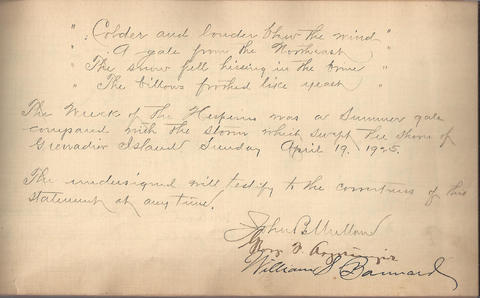 " Colder and louder blew the wind "
" A gale from the Northeast "
" The snow fell hissing in the brine "
" The billows frothed like yeast "
The Wreck of the Hesperus was a Summer gale
compared with the storm which swept the shore of
Grenadier Island Sunday April 19, 1925.
The undersigned will testify to the correctness of this
statement at any time.
John B.
William S. Barnard